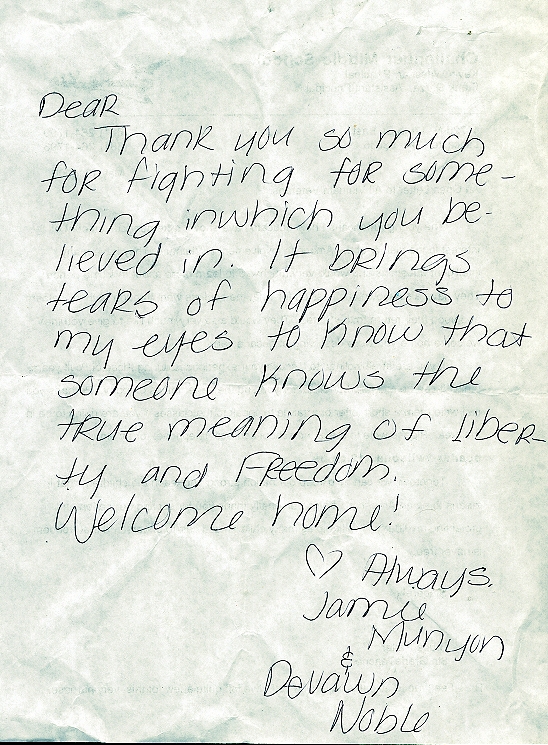 Dear
Thank you so much
for fighting for some-
thing inwhich you be-
lieved in. It brings
tears of happiness to
my eyes to know that
someone knows the
true meaning of liber-
ty and Freedom.
Welcome home!
♡ Always,
Jamie
Munyon
&
Devawn
Noble